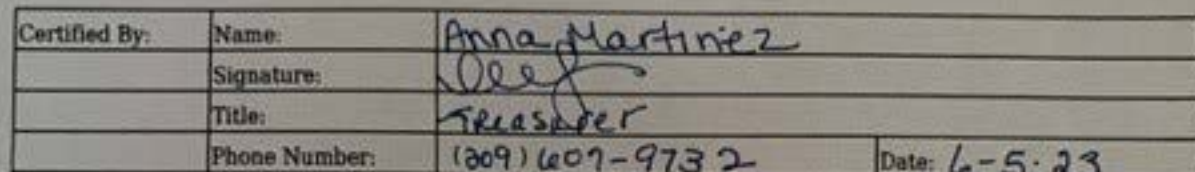 Certified By: Name: Anna Martinez
Signature:
Title: Treasurer
Phone Number: (209) 607-9732 Date: 6-5-23